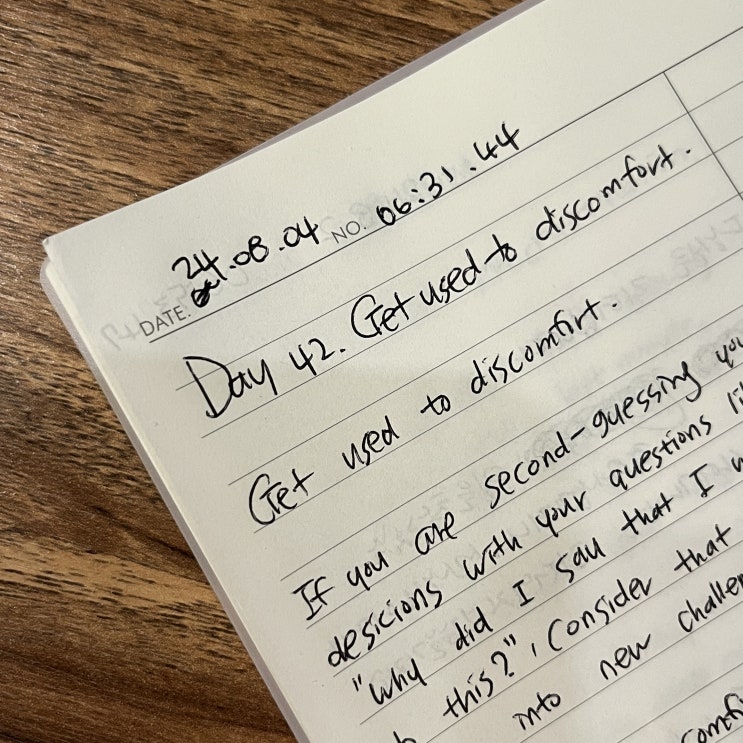 DATE. 24.08.04 NO. 06:31.44
Day 42. Get used to discomfort.
Get used to discomfort.
If you are second-guessing
desicions with your questions
"why did I say that I
this?", Consider that
into new